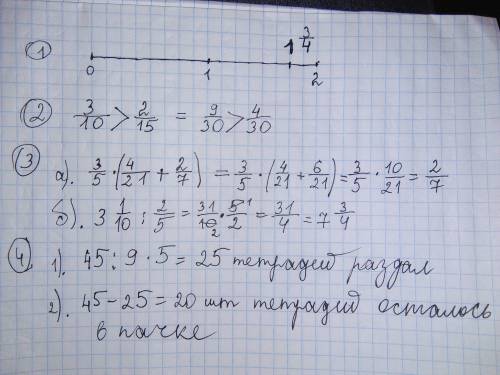 1 1 3/4
0 1 2
2 3/10 > 2/15 = 9/30 > 4/30
3 а). 3/5 · (4/21 + 2/7) = 3/5 · (4/21 + 6/21) = 3/5 · 10/21 = 2/7
б). 3 1/10 : 2/5 = 31/10 2 · 5 1/2 = 31/4 = 7 3/4
4 1). 45 : 9 · 5 = 25 тетрадей раздал
2). 45 - 25 = 20 шт тетрадей осталось
в пачке